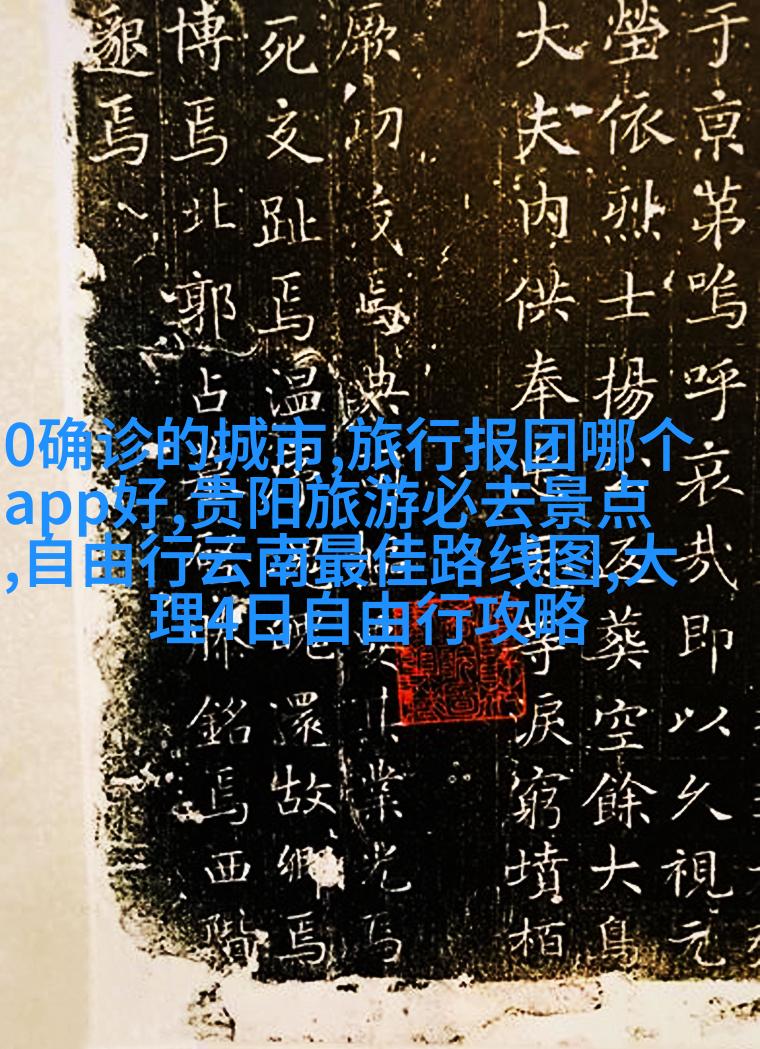 0确诊的城市,旅行报团哪个
app好,贵阳旅游必去景点
,自由行云南最佳路线图,大
理4日自由行攻略
于京第嗚呼哀哉即以久視元
塋依烈士揚葬空餘大鳥
大夫内供奉等淚窮墳栢
厥初焉典業光焉
死交趾焉温還故鄉焉
博焉北郭占銘焉西階
邈焉